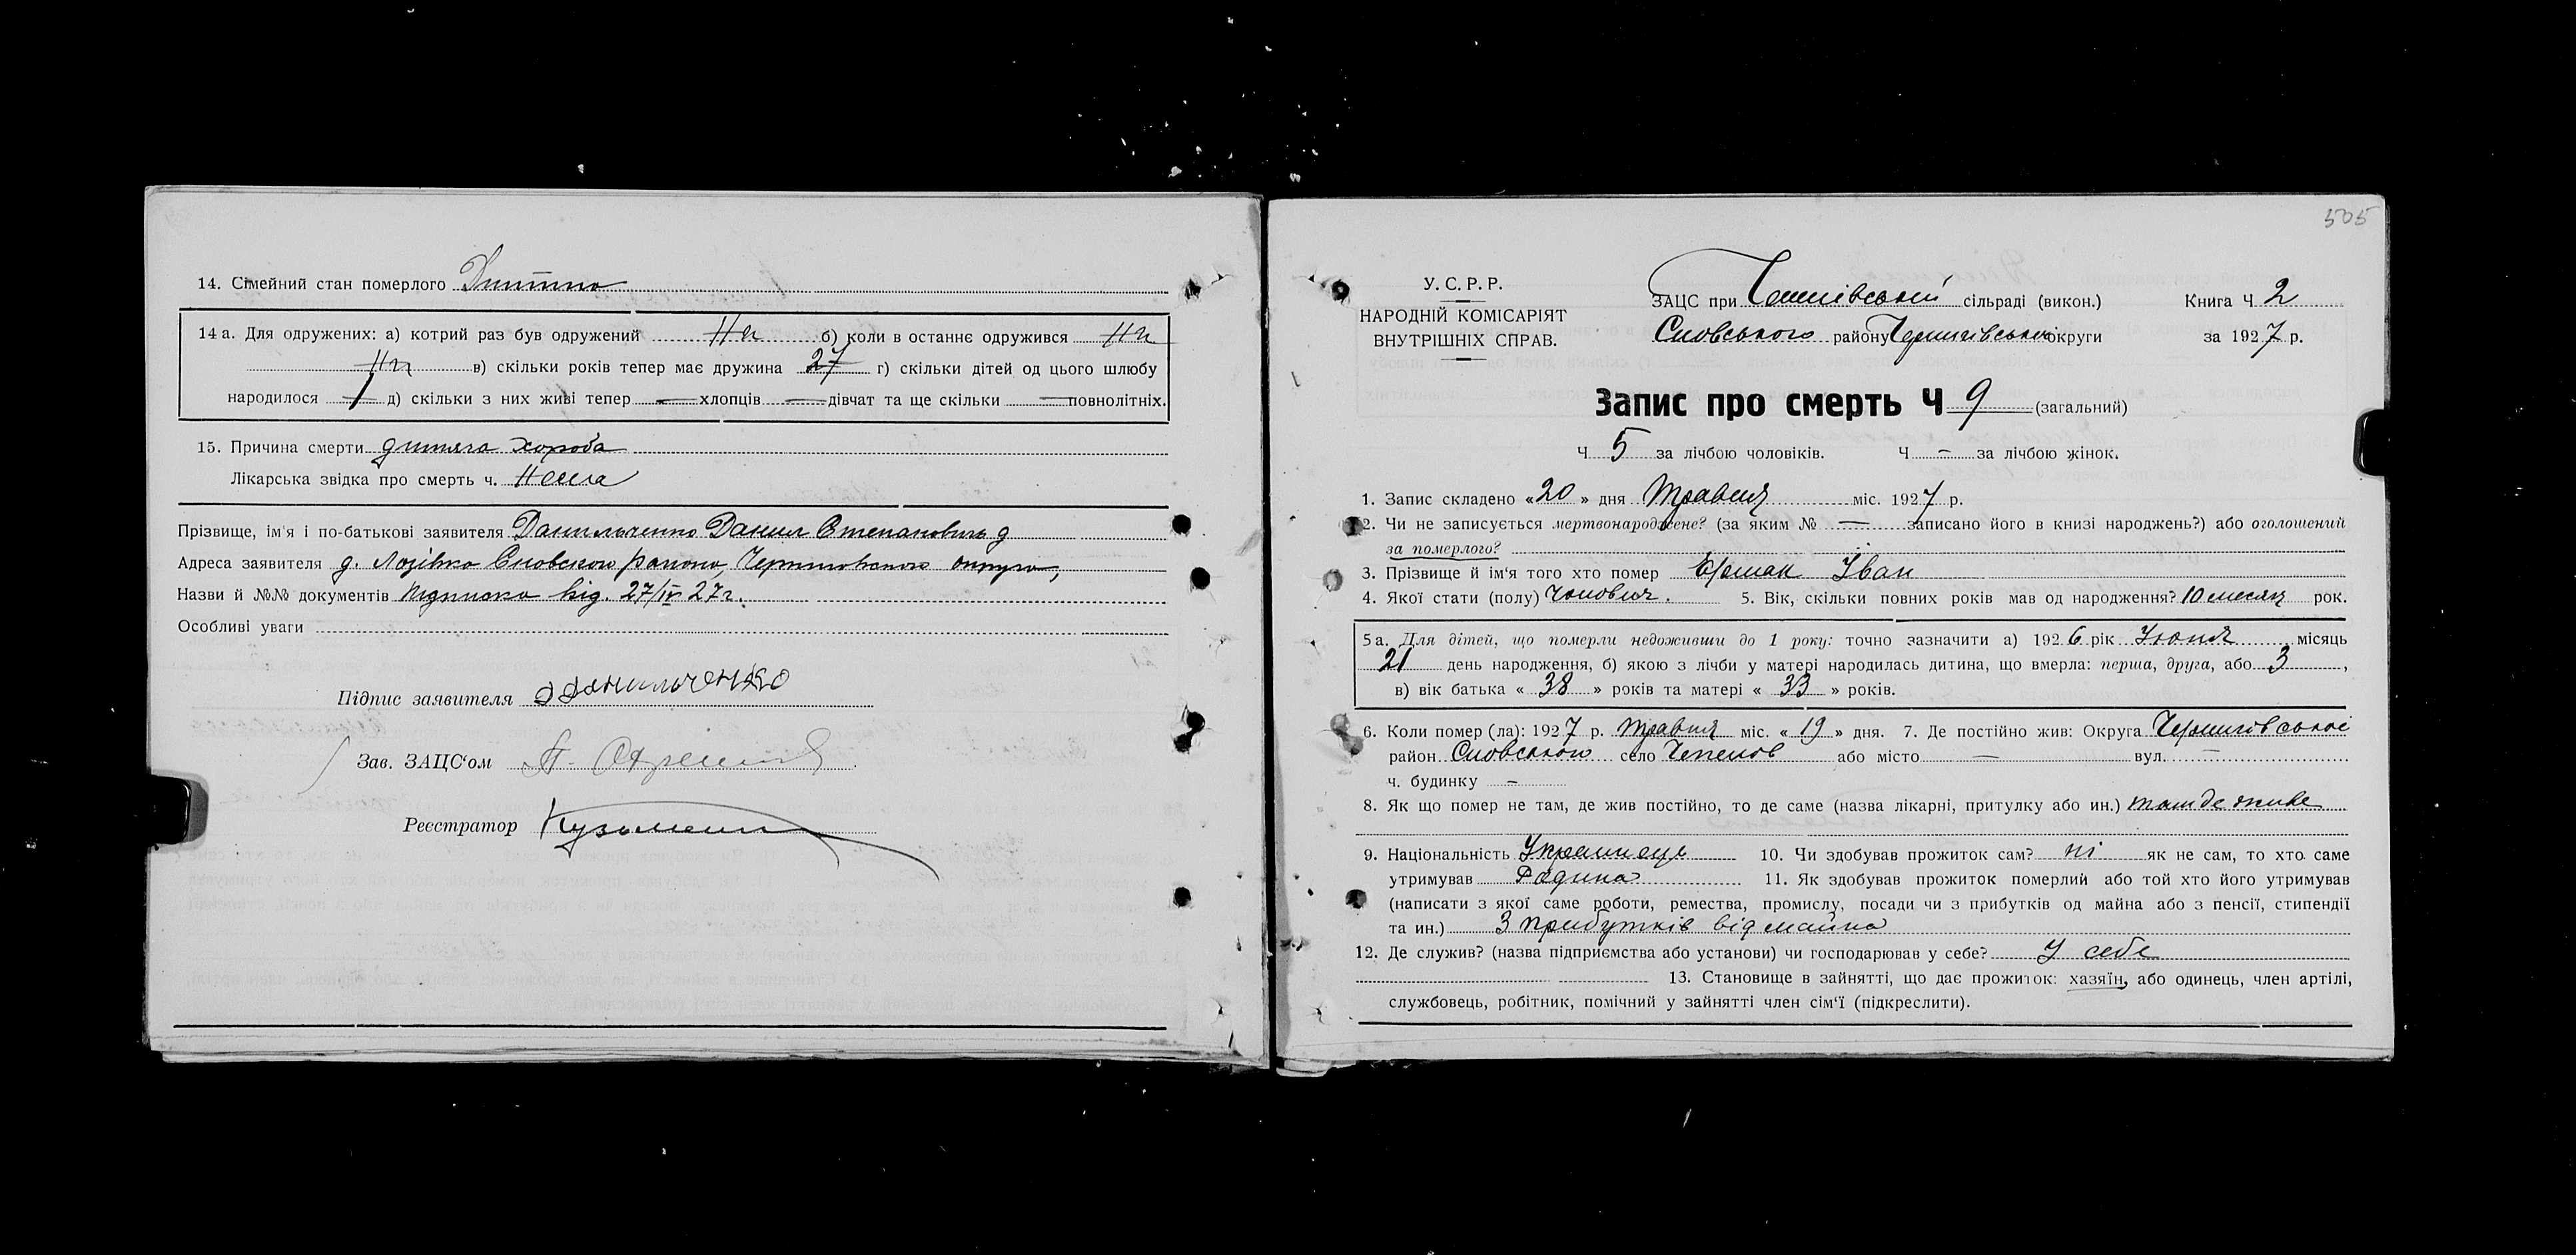 14. Сімейний стан померлого Дитина
14 а. Для одружених: а) котрий раз був одружений Ні б) коли в останнє одружився Ні
Ні в) скільки років тепер має дружина 27 г) скільки дітей од цього шлюбу
народилося 1 д) скільки з них живі тепер — хлопців — дівчат та ще скільки — повнолітніх.
15. Причина смерти дитяча хороба
Лікарська звідка про смерть ч. Нема
Прізвище, ім'я і по-батькові заявителя Данильченко Данил Степанович
Адреса заявителя д. Лозівка Сновского району, Черниговского округа,
Назви й №№ документів підписка від. 27/IV 27 г.
Особливі уваги
Підпис заявителя Данильченко
Зав. ЗАЦС'ом
Реєстратор Кузьменко
505
У. С. Р. Р.
НАРОДНІЙ КОМІСАРІЯТ
ВНУТРІШНІХ СПРАВ.
ЗАЦС при сільраді (викон.) Книга Ч 2
Сновського району Чернигівської округи за 1927 р.
Запис про смерть Ч 9 (загальний)
Ч 5 за лічбою чоловіків. Ч — за лічбою жінок.
1. Запис складено «20» дня Травня міс. 1927 р.
2. Чи не записується мертвонароджене? (за яким № — записано його в книзі народжень?) або оголошений
за померлого?
3. Прізвище й ім'я того хто помер Єрмак Іван
4. Якої стати (полу) Чоловіч. 5. Вік, скільки повних років мав од народження? 10 месяц рок.
5 а. Для дітей, що померли недоживши до 1 року: точно зазначити а) 1926 рік Июня місяць
21 день народження, б) якою з лічби у матері народилась дитина, що вмерла: перша, друга, або 3,
в) вік батька «38» років та матері «33» років.
6. Коли помер (ла): 1927 р. травня міс. «19» дня. 7. Де постійно жив: Округа Чернигівської
район Сновського село Чепелов або місто — вул. —
ч. будинку —
8. Як що помер не там, де жив постійно, то де саме (назва лікарні, притулку або ин.) там де живе
9. Національність Украинець 10. Чи здобував прожиток сам? ні як не сам, то хто саме
утримував Родина 11. Як здобував прожиток померлий або той хто його утримував
(написати з якої саме роботи, ремества, промислу, посади чи з прибутків од майна або з пенсії, стипендії
та ин.) З прибутків від майна
12. Де служив? (назва підприємства або установи) чи господарював у себе? У себе
13. Становище в зайнятті, що дає прожиток: хазяїн, або одинець, член артілі,
службовець, робітник, помічний у зайнятті член сім'ї (підкреслити).